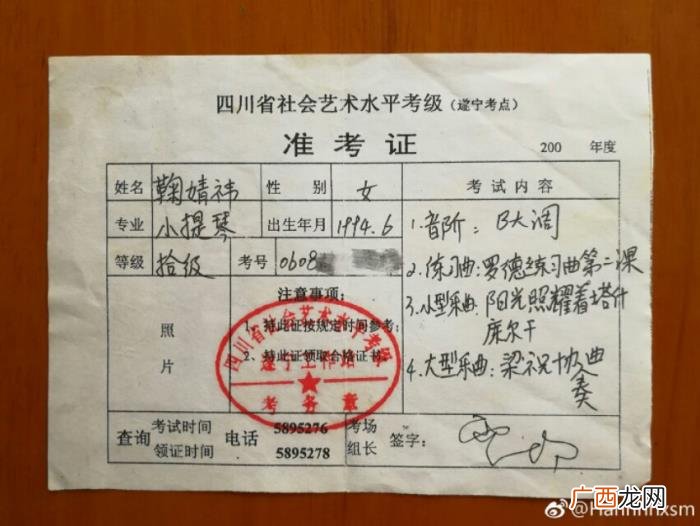 四川省社会艺术水平考级(遂宁考点)
准考证
200 年度
姓名 鞠婧祎 性别 女 考试内容
专业 小提琴 出生年月 1994.6 1.音阶：B大调
等级 拾级 考号 0608 2.练习曲:罗德练习曲第二课
照片
注意事项:
1、持此证按规定时间参考;
2、持此证领取合格证书。
3.小型乐曲:阳光照耀着塔什
库尔干
4.大型乐曲:梁祝协奏曲
四川省社会艺术水平考级
遂宁工作站
考务章
查询 考试时间 电话 5895276 考场 签字:
领证时间 5895278 组长
@Hahhhhxsm
广西龙网